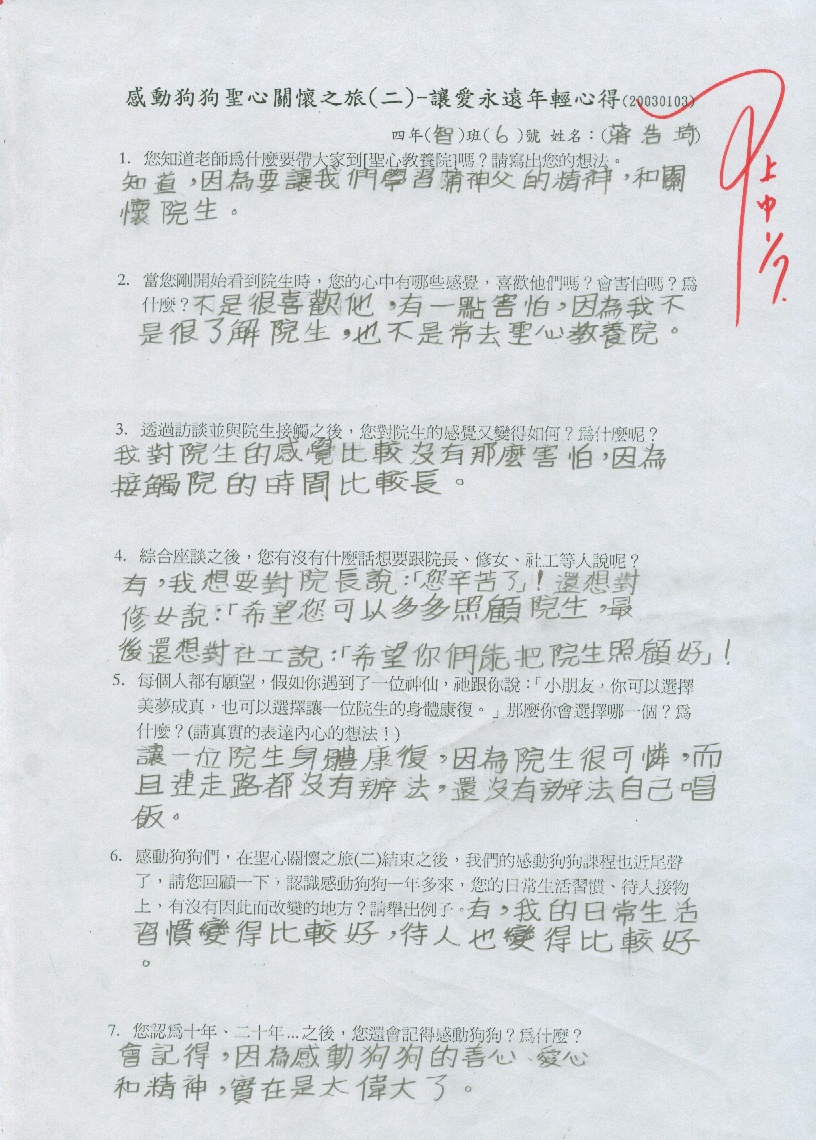 感動狗狗聖心關懷之旅(二)-讓愛永遠年輕心得(20030103)
四年(智)班(6)號 姓名：(蔣浩琦)
1. 您知道老師爲什麼要帶大家到[聖心教養院]嗎？請寫出您的想法。
知道，因為要讓我們學習蒲神父的精神，和關
懷院生。
上中
1/7.
2. 當您剛開始看到院生時，您的心中有哪些感覺，喜歡他們嗎？會害怕嗎？爲
什麼？不是很喜歡他，有一點害怕，因為我不
是很了解院生，也不是常去聖心教養院。
3. 透過訪談並與院生接觸之後，您對院生的感覺又變得如何？爲什麼呢？
我對院生的感覺比較沒有那麼害怕，因為
接觸院的時間比較長。
4. 綜合座談之後，您有沒有什麼話想要跟院長、修女、社工等人說呢？
有，我想要對院長說：「您辛苦了」！還想對
修女說：「希望您可以多多照顧院生，最
後還想對社工說：「希望你們能把院生照顧好」！
5. 每個人都有願望，假如你遇到了一位神仙，祂跟你說：「小朋友，你可以選擇
美夢成真，也可以選擇讓一位院生的身體康復。」那麼你會選擇哪一個？爲
什麼？(請真實的表達內心的想法！)
讓一位院生身體康復，因為院生很可憐，而
且連走路都沒有辦法，還沒有辦法自己唱
飯。
6. 感動狗狗們，在聖心關懷之旅(二)結束之後，我們的感動狗狗課程也近尾聲
了，請您回顧一下，認識感動狗狗一年多來，您的日常生活習慣、待人接物
上，有沒有因此而改變的地方？請舉出例子。有，我的日常生活
習慣變得比較好，待人也變得比較好
。
7. 您認爲十年、二十年...之後，您還會記得感動狗狗？爲什麼？
會記得，因為感動狗狗的善心、愛心
和精神，實在是太偉大了。